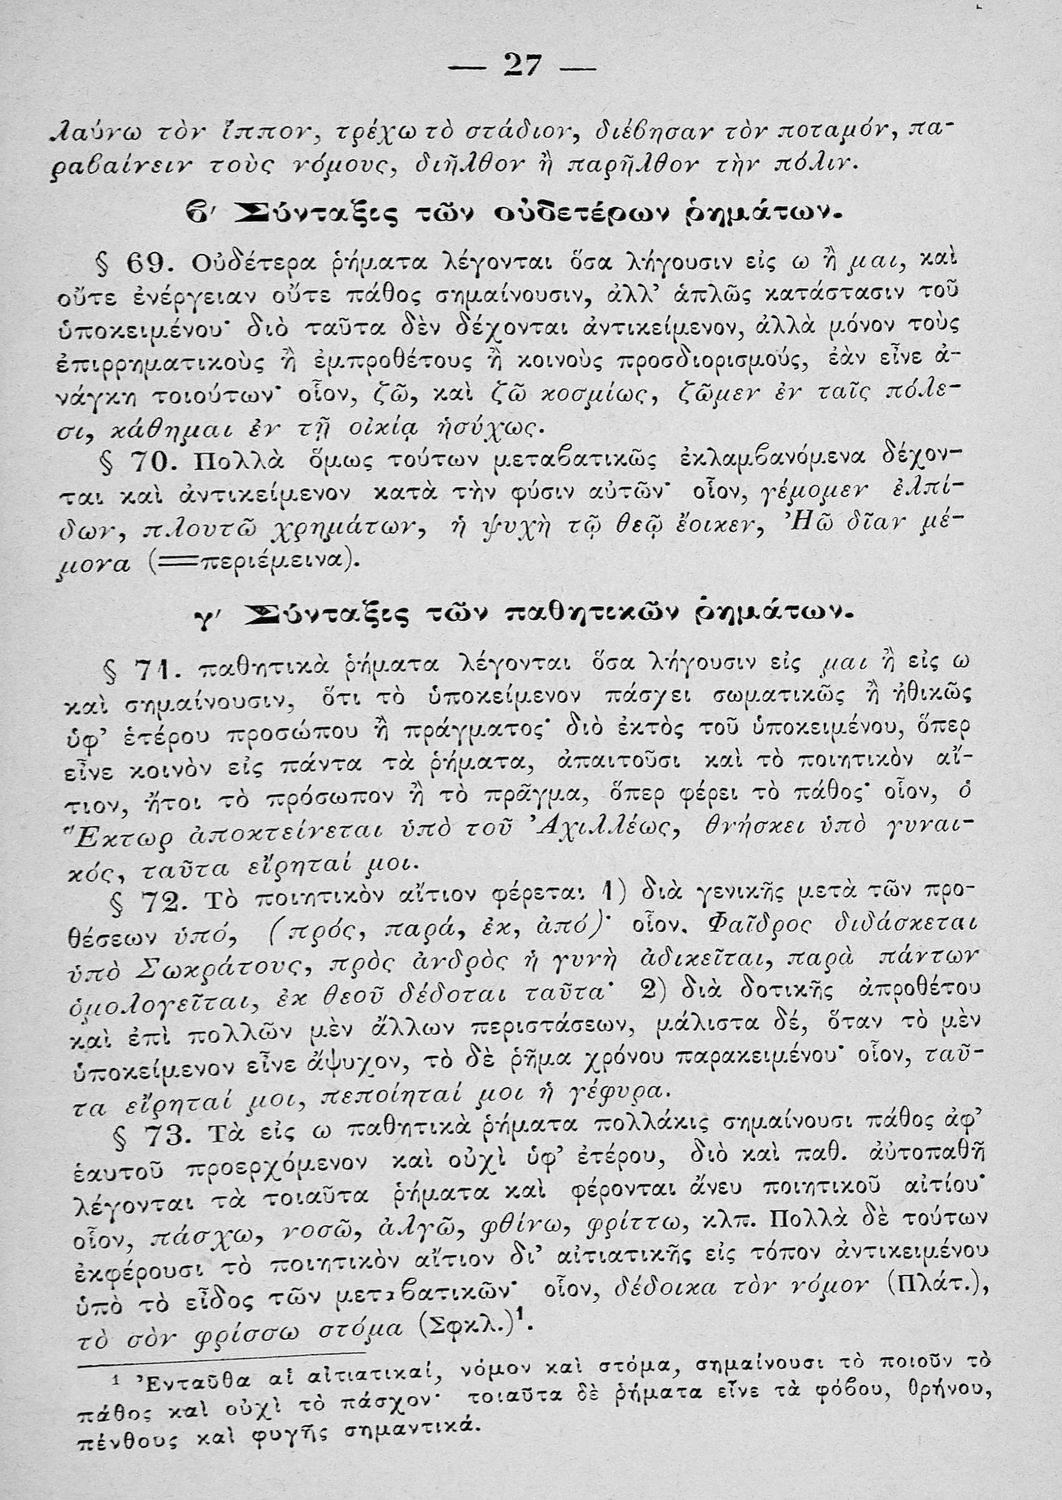 — 27 —
λαύνω τὸν ἵππον, τρέχω τὸ στάδιον, διέβησαν τὸν ποταμόν, πα-
ραβαίνειν τοὺς νόμους, διῆλθον ἢ παρῆλθον τὴν πόλιν.
β′ Σύνταξις τῶν οὐδετέρων ῥημάτων.
§ 69. Οὐδέτερα ῥήματα λέγονται ὅσα λήγουσιν εἰς ω ἢ μαι, καὶ
οὔτε ἐνέργειαν οὔτε πάθος σημαίνουσιν, ἀλλ’ ἁπλῶς κατάστασιν τοῦ
ὑποκειμένου· διὸ ταῦτα δὲν δέχονται ἀντικείμενον, ἀλλὰ μόνον τοὺς
ἐπιρρηματικοὺς ἢ ἐμπροθέτους ἢ κοινοὺς προσδιορισμούς, ἐὰν εἶνε ἀ-
νάγκη τοιούτων· οἷον, ζῶ, καὶ ζῶ κοσμίως, ζῶμεν ἐν ταῖς πόλε-
σι, κάθημαι ἐν τῇ οἰκίᾳ ἡσύχως.
§ 70. Πολλὰ ὅμως τούτων μεταβατικῶς ἐκλαμβανόμενα δέχον-
ται καὶ ἀντικείμενον κατὰ τὴν φύσιν αὐτῶν· οἷον, γέμομεν ἐλπί-
δων, πλουτῶ χρημάτων, ἡ ψυχὴ τῷ θεῷ ἔοικεν, Ἠῶ δῖαν μέ-
μονα (=περιέμεινα).
γ′ Σύνταξις τῶν παθητικῶν ῥημάτων.
§ 71. παθητικὰ ῥήματα λέγονται ὅσα λήγουσιν εἰς μαι ἢ εἰς ω
καὶ σημαίνουσιν, ὅτι τὸ ὑποκείμενον πάσχει σωματικῶς ἢ ἠθικῶς
ὑφ’ ἑτέρου προσώπου ἢ πράγματος· διὸ ἐκτὸς τοῦ ὑποκειμένου, ὅπερ
εἶνε κοινὸν εἰς πάντα τὰ ῥήματα, ἀπαιτοῦσι καὶ τὸ ποιητικὸν αἴ-
τιον, ἤτοι τὸ πρόσωπον ἢ τὸ πρᾶγμα, ὅπερ φέρει τὸ πάθος· οἷον, ὁ
Ἕκτωρ ἀποκτείνεται ὑπὸ τοῦ Ἀχιλλέως, θνήσκει ὑπὸ γυναι-
κός, ταῦτα εἴρηταί μοι.
§ 72. Τὸ ποιητικὸν αἴτιον φέρεται 1) διὰ γενικῆς μετὰ τῶν προ-
θέσεων ὑπό, (πρός, παρά, ἐκ, ἀπό)· οἷον. Φαῖδρος διδάσκεται
ὑπὸ Σωκράτους, πρὸς ἀνδρὸς ἡ γυνὴ ἀδικεῖται, παρὰ πάντων
ὁμολογεῖται, ἐκ θεοῦ δέδοται ταῦτα· 2) διὰ δοτικῆς ἀπροθέτου
καὶ ἐπὶ πολλῶν μὲν ἄλλων περιστάσεων, μάλιστα δέ, ὅταν τὸ μὲν
ὑποκείμενον εἶνε ἄψυχον, τὸ δὲ ῥῆμα χρόνου παρακειμένου· οἷον, ταῦ-
τα εἴρηταί μοι, πεποίηταί μοι ἡ γέφυρα.
§ 73. Τὰ εἰς ω παθητικὰ ῥήματα πολλάκις σημαίνουσι πάθος ἀφ’
ἑαυτοῦ προερχόμενον καὶ οὐχὶ ὑφ’ ἑτέρου, διὸ καὶ παθ. αὐτοπαθῆ
λέγονται τὰ τοιαῦτα ῥήματα καὶ φέρονται ἄνευ ποιητικοῦ αἰτίου·
οἷον, πάσχω, νοσῶ, ἀλγῶ, φθίνω, φρίττω, κλπ. Πολλὰ δὲ τούτων
ἐκφέρουσι τὸ ποιητικὸν αἴτιον δι’ αἰτιατικῆς εἰς τόπον ἀντικειμένου
ὑπὸ τὸ εἶδος τῶν μεταβατικῶν· οἷον, δέδοικα τὸν νόμον (Πλάτ.),
τὸ σὸν φρίσσω στόμα (Σφκλ.)¹.
¹ Ἐνταῦθα αἱ αἰτιατικαί, νόμον καὶ στόμα, σημαίνουσι τὸ ποιοῦν τὸ
πάθος καὶ οὐχὶ τὸ πάσχον· τοιαῦτα δὲ ῥήματα εἶνε τὰ φόβου, θρήνου,
πένθους καὶ φυγῆς σημαντικά.